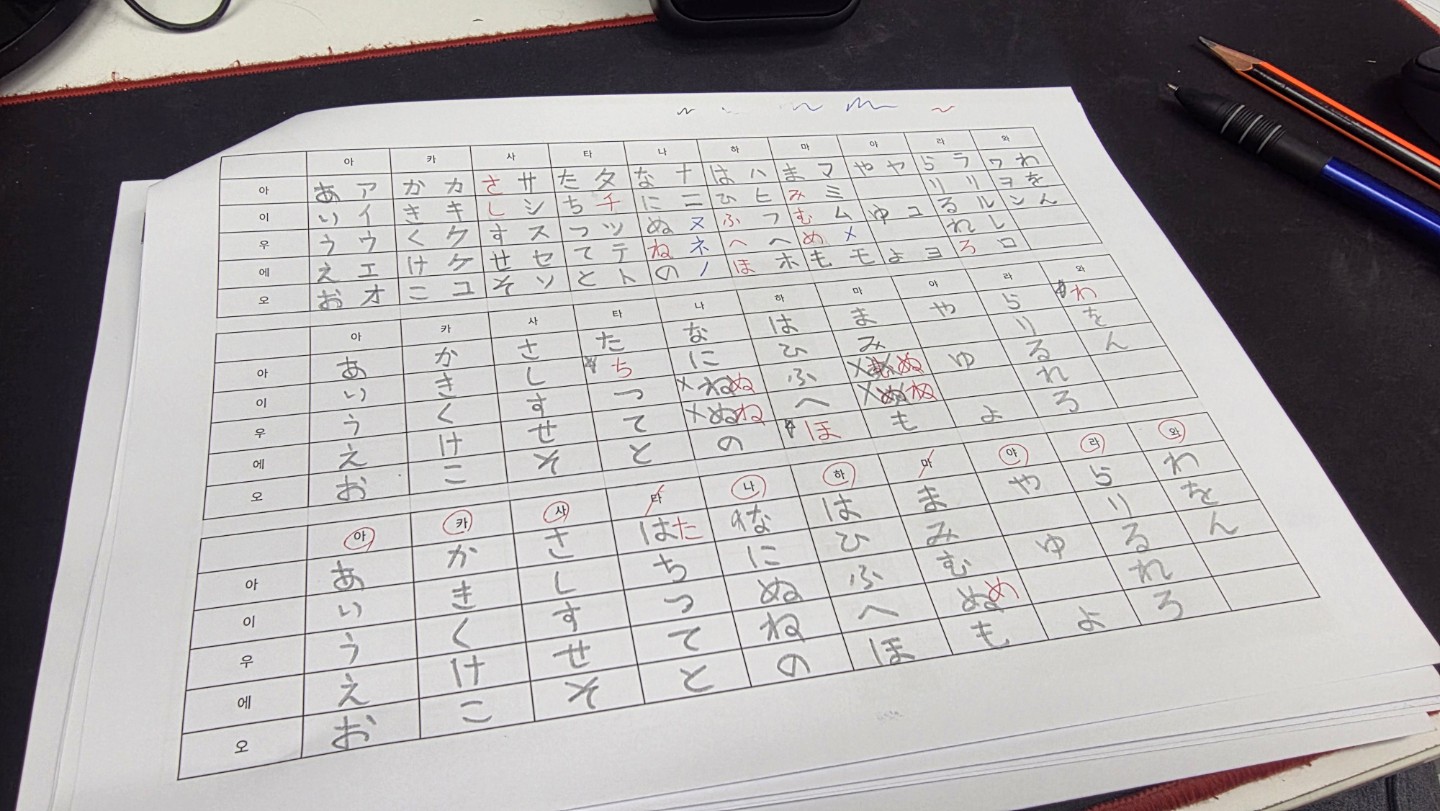 아 카 사 타 나 하 마 야 라 와
아 あ ア か カ さ サ た タ な ナ は ハ ま マ や ヤ ら ラ ワ わ
이 い イ き キ し シ ち チ に ニ ひ ヒ み ミ り リ ヲ を
우 う ウ く ク す ス つ ツ ぬ ヌ ふ フ む ム ゆ ユ る ル ン ん
에 え エ け ケ せ セ て テ ね ネ へ ヘ め メ れ レ
오 お オ こ コ そ ソ と ト の ノ ほ ホ も モ よ ヨ ろ ロ
아 카 사 타 나 하 마 야 라 와
아 あ か さ た な は ま や ら わ
이 い き し ち に ひ み り を
우 う く す つ ×ね ぬ ふ × ぬ ゆ る ん
에 え け せ て ×ぬ ね へ ×ぬ ね れ
오 お こ そ と の ほ も よ ろ
아 카 사 타 나 하 마 야 라 와
아 あ か さ は た な は ま や ら わ
이 い き し ち に ひ み り を
우 う く す つ ぬ ふ む ゆ る ん
에 え け せ て ね へ ぬ め れ
오 お こ そ と の ほ も よ ろ